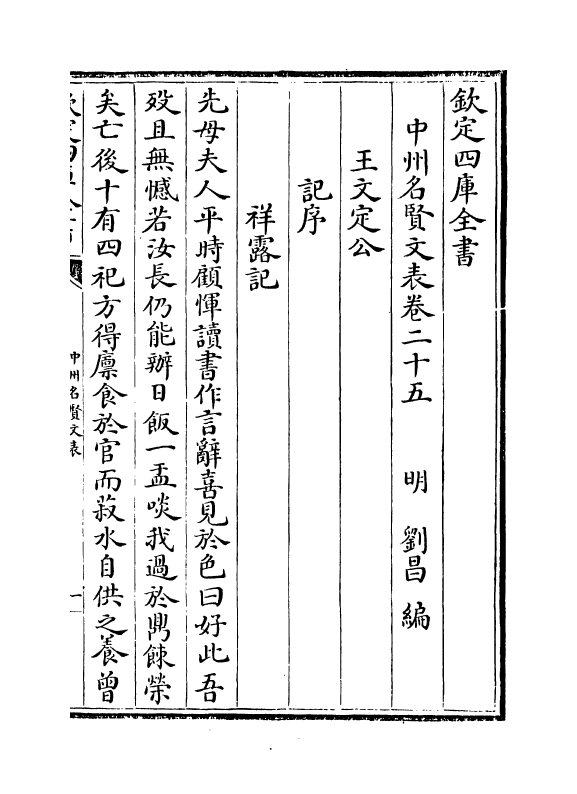 欽定四庫全書
中州名賢文表卷二十五　　明　劉昌　編
王文定公
記序
祥露記
先母夫人平時顧惲讀書作言辭喜見於色曰好此吾
歿且無憾若汝長仍能辦日飯一盂啖我過於鼎餗榮
矣亡後十有四祀方得廪食於官而菽水自供之養曾
中州名賢文表
一